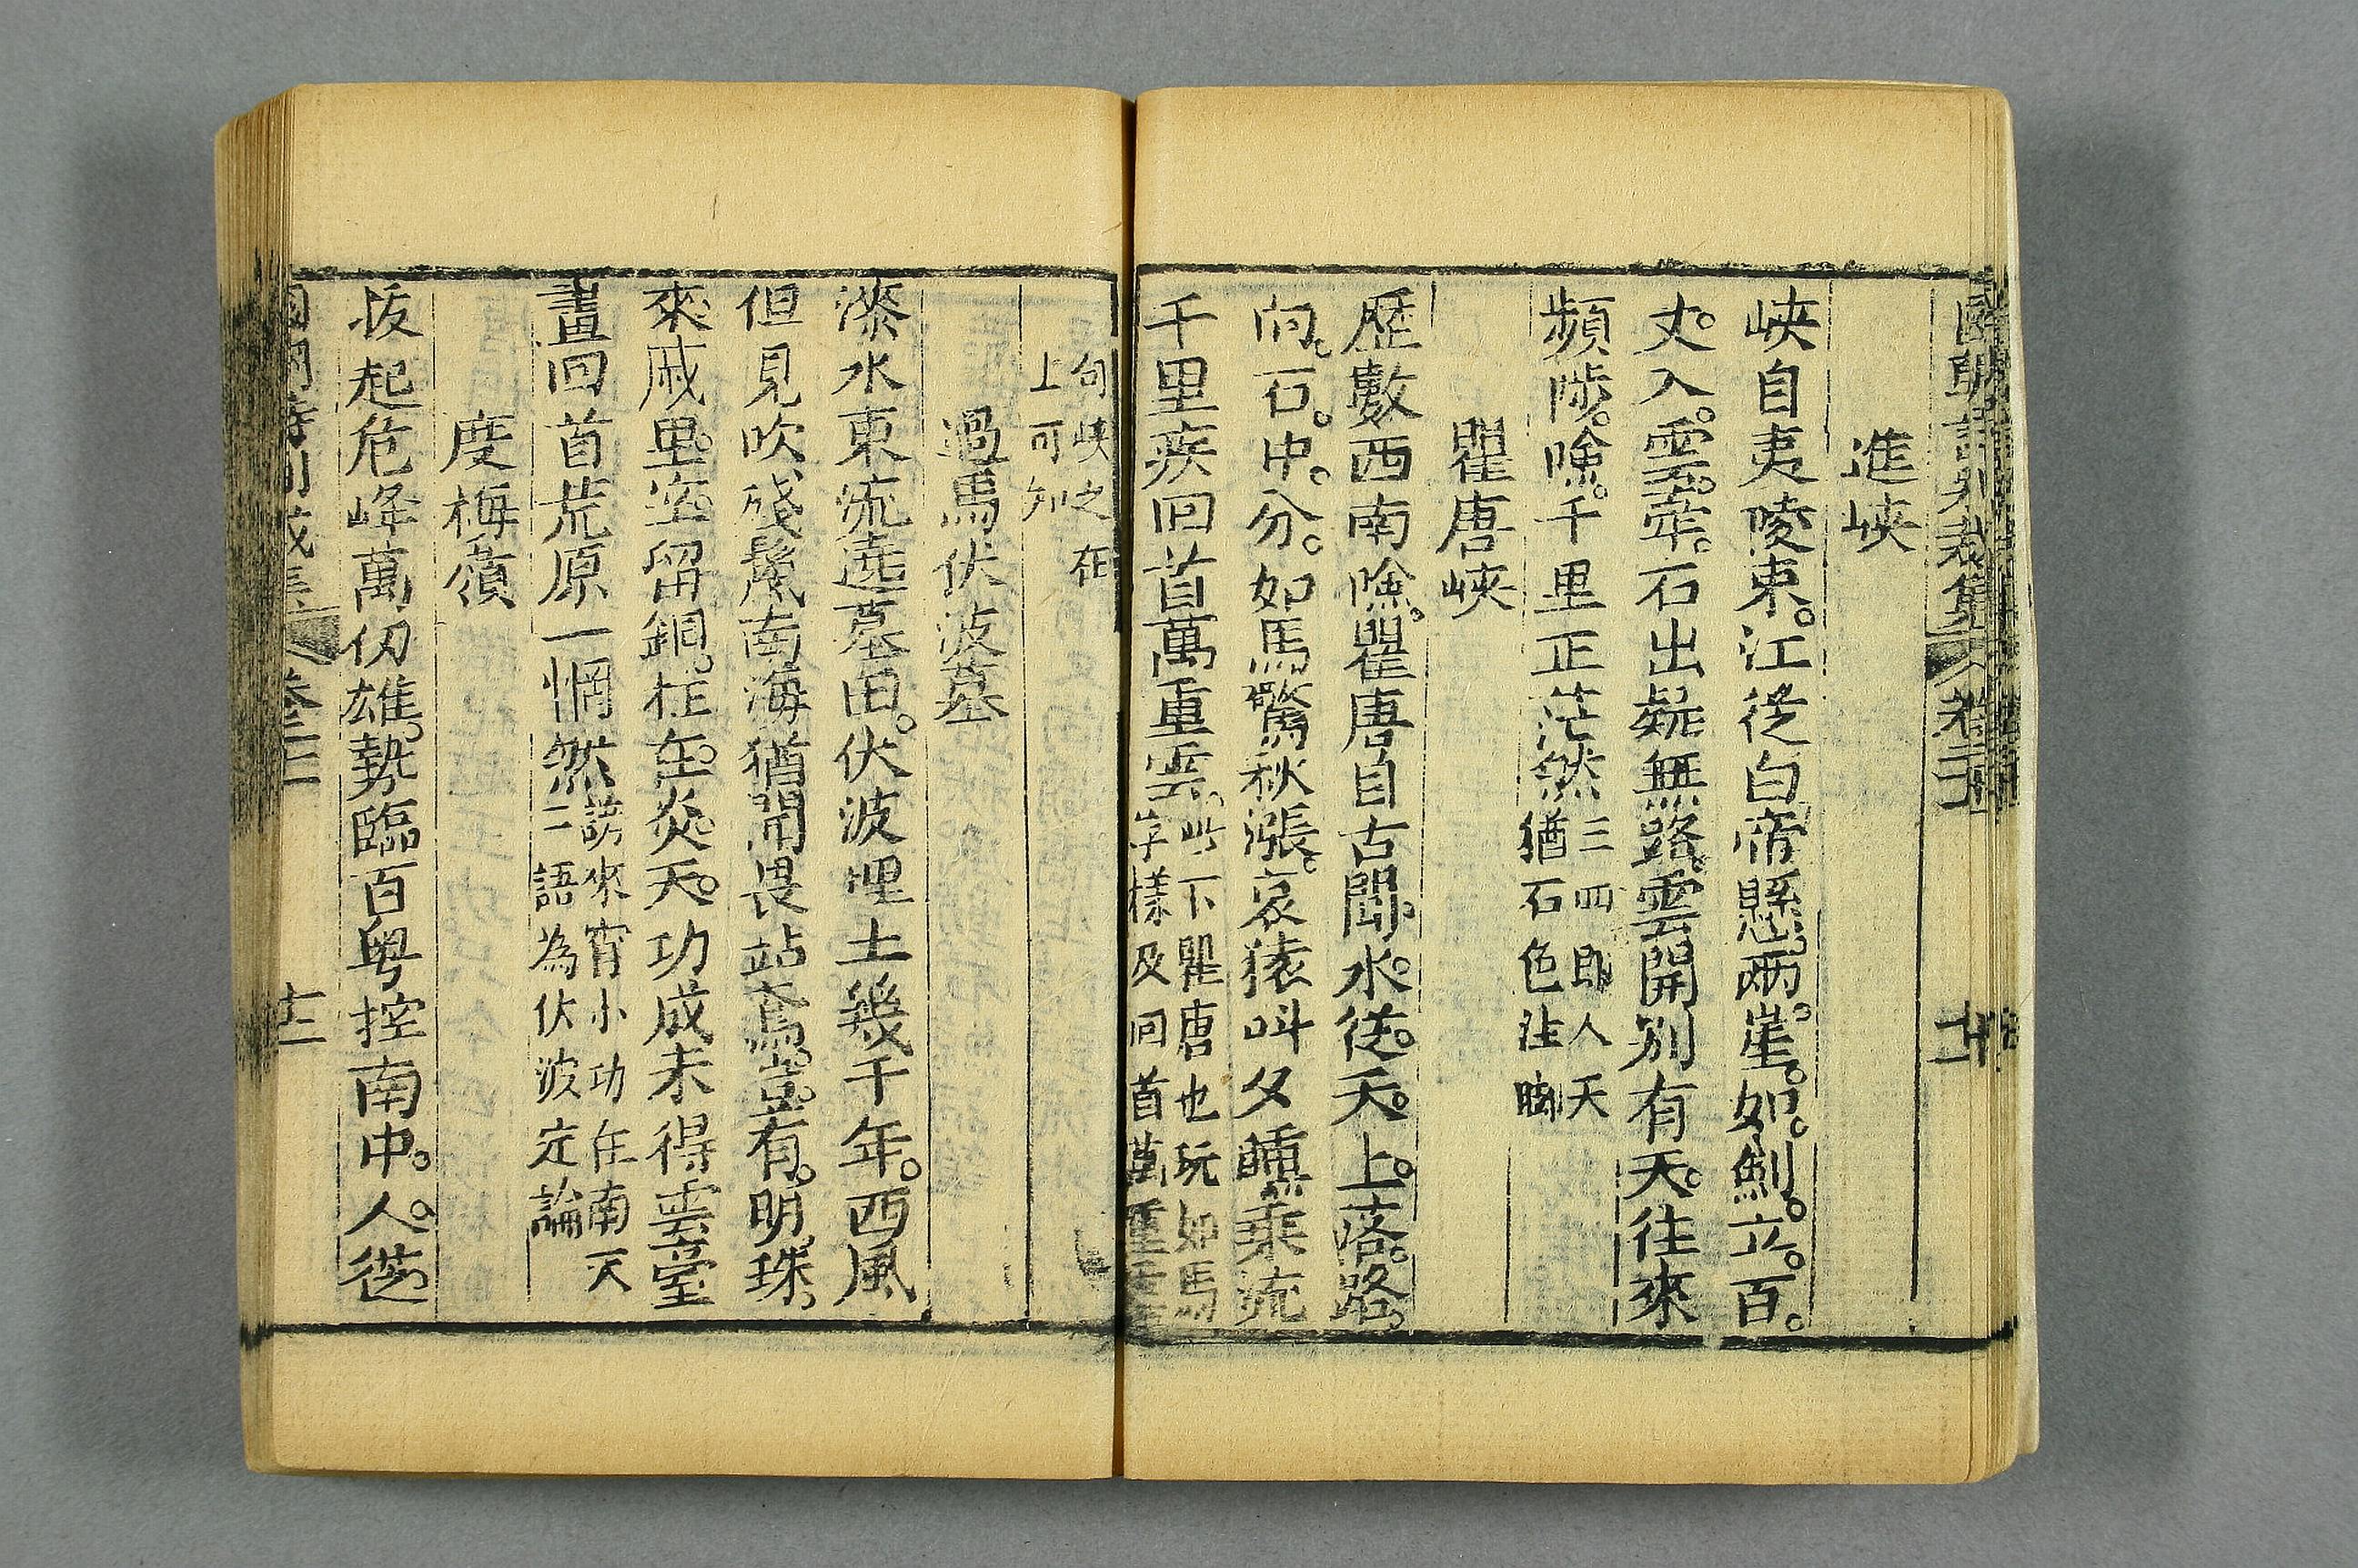 國朝詩別裁集 卷二 十二
進峽
峽自夷陵束江從白帝懸兩崖如劍立百
丈入雲牽石出疑無路雲開別有天往來
頻陟險千里正茫然三四即人天
猶石色注脚
瞿唐峽
歷數西南險瞿唐自古聞水從天上落路
向石中分如馬驚秋漲哀猿叫夕曛乘流
千里疾回首萬重雲此下瞿唐也玩如馬
字樣及回首萬重雲
句峽之在
上可知
過馬伏波墓
漆水東流遶墓田伏波埋土幾千年西風
但見吹殘鬢南海猶聞畏站鳶豈有明珠
來戚里空留銅柱在炎天功成未得雲臺
畫回首荒原一惘然謗來宵小功在南天
二語為伏波定論
度梅嶺
拔起危峰萬仞雄勢臨百粤控南中人從
卷二 十三